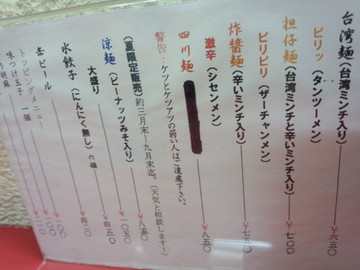 台湾麺(台湾ミンチ入り)¥六五〇
ピリッ(タンツーメン)
担仔麺(台湾ミンチと辛いミンチ入り)¥七〇〇
ピリピリ(ザーチャンメン)
炸醤麺(辛いミンチ入り)¥七五〇
激辛(シセンメン)
四川麺 ¥八五〇
警告:ケツとケツアツの弱い人はご遠慮下さい。
(夏限定販売)約三月末~九月末迄。(天気と相談します!)
涼麺(ピーナッツみそ入り)¥八五〇
大盛り ¥一〇五〇
水餃子(にんにく無し)六個 ¥四五〇
缶ビール
トッピングメニュー
味つけ玉子 一個